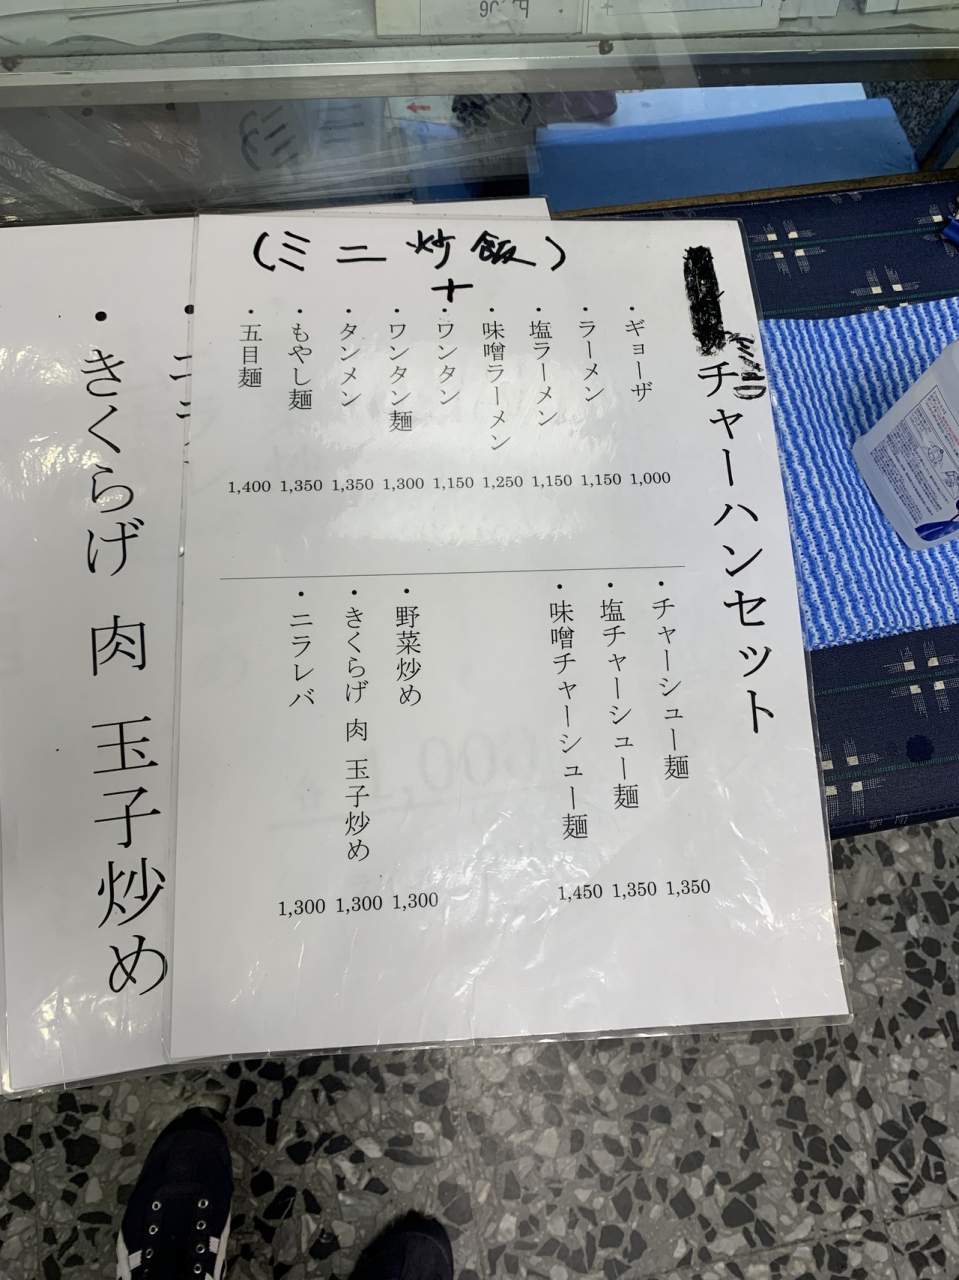 ミニ
チャーハンセット
(ミニ炒飯)
+
・ギョーザ 1,000
・ラーメン 1,150
・塩ラーメン 1,150
・味噌ラーメン 1,250
・ワンタン 1,150
・ワンタン麺 1,300
・タンメン 1,350
・もやし麺 1,350
・五目麺 1,400
・チャーシュー麺 1,350
・塩チャーシュー麺 1,350
・味噌チャーシュー麺 1,450
・野菜炒め 1,300
・きくらげ 肉 玉子炒め 1,300
・ニラレバ 1,300
・きくらげ 肉 玉子炒め